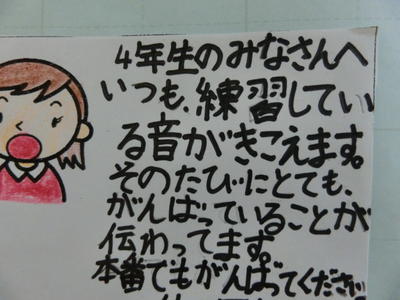 4年生のみなさんへ
いつも、練習してい
る音がきこえます。
そのたびにとても、
がんばっていることが
伝わってます。
本番でもがんばってください